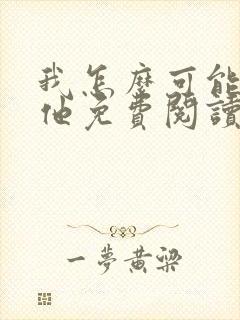 我怎麼可能
他免費閱讀
一夢黃粱